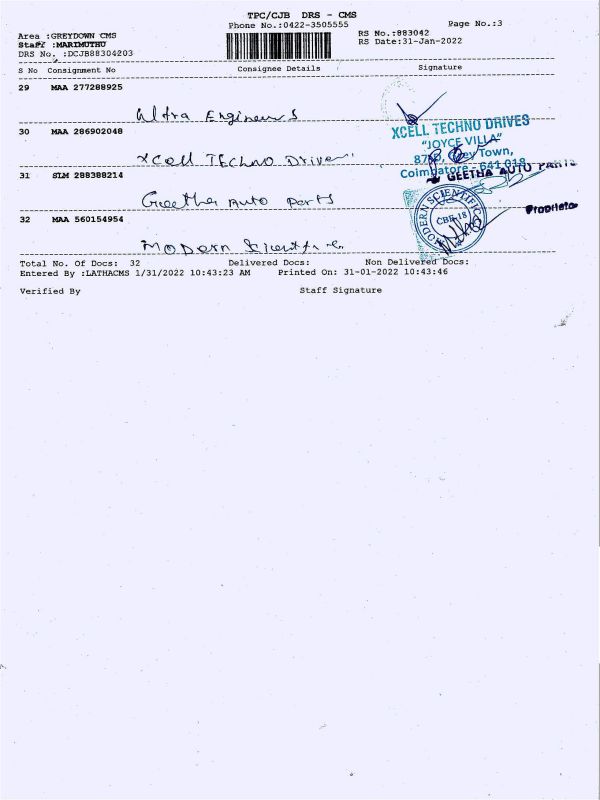 TPC/CJB DRS - CMS
Phone No.:0422-3505555
Page No.:3
Area :GREYDOWN CMS
Staff :MARIMUTHU
DRS No. :DCJB88304203
RS No.:883042
RS Date:31-Jan-2022
S No Consignment No Consignee Details Signature
29 MAA 277288925
Ultra Engineers
30 MAA 286902048
Xcell Techno Drives
XCELL TECHNO DRIVES
"JOYCE VILLA"
Town,
Coimbatore - 641 018
31 SLM 288388214
GEETHA AUTO PARTS
Geetha Auto Parts
Proprietor
32 MAA 560154954
MODERN SCIENTIFIC
CBE-18
Modern Scientific
Total No. Of Docs: 32 Delivered Docs: Non Delivered Docs:
Entered By :LATHACMS 1/31/2022 10:43:23 AM Printed On: 31-01-2022 10:43:46
Verified By Staff Signature